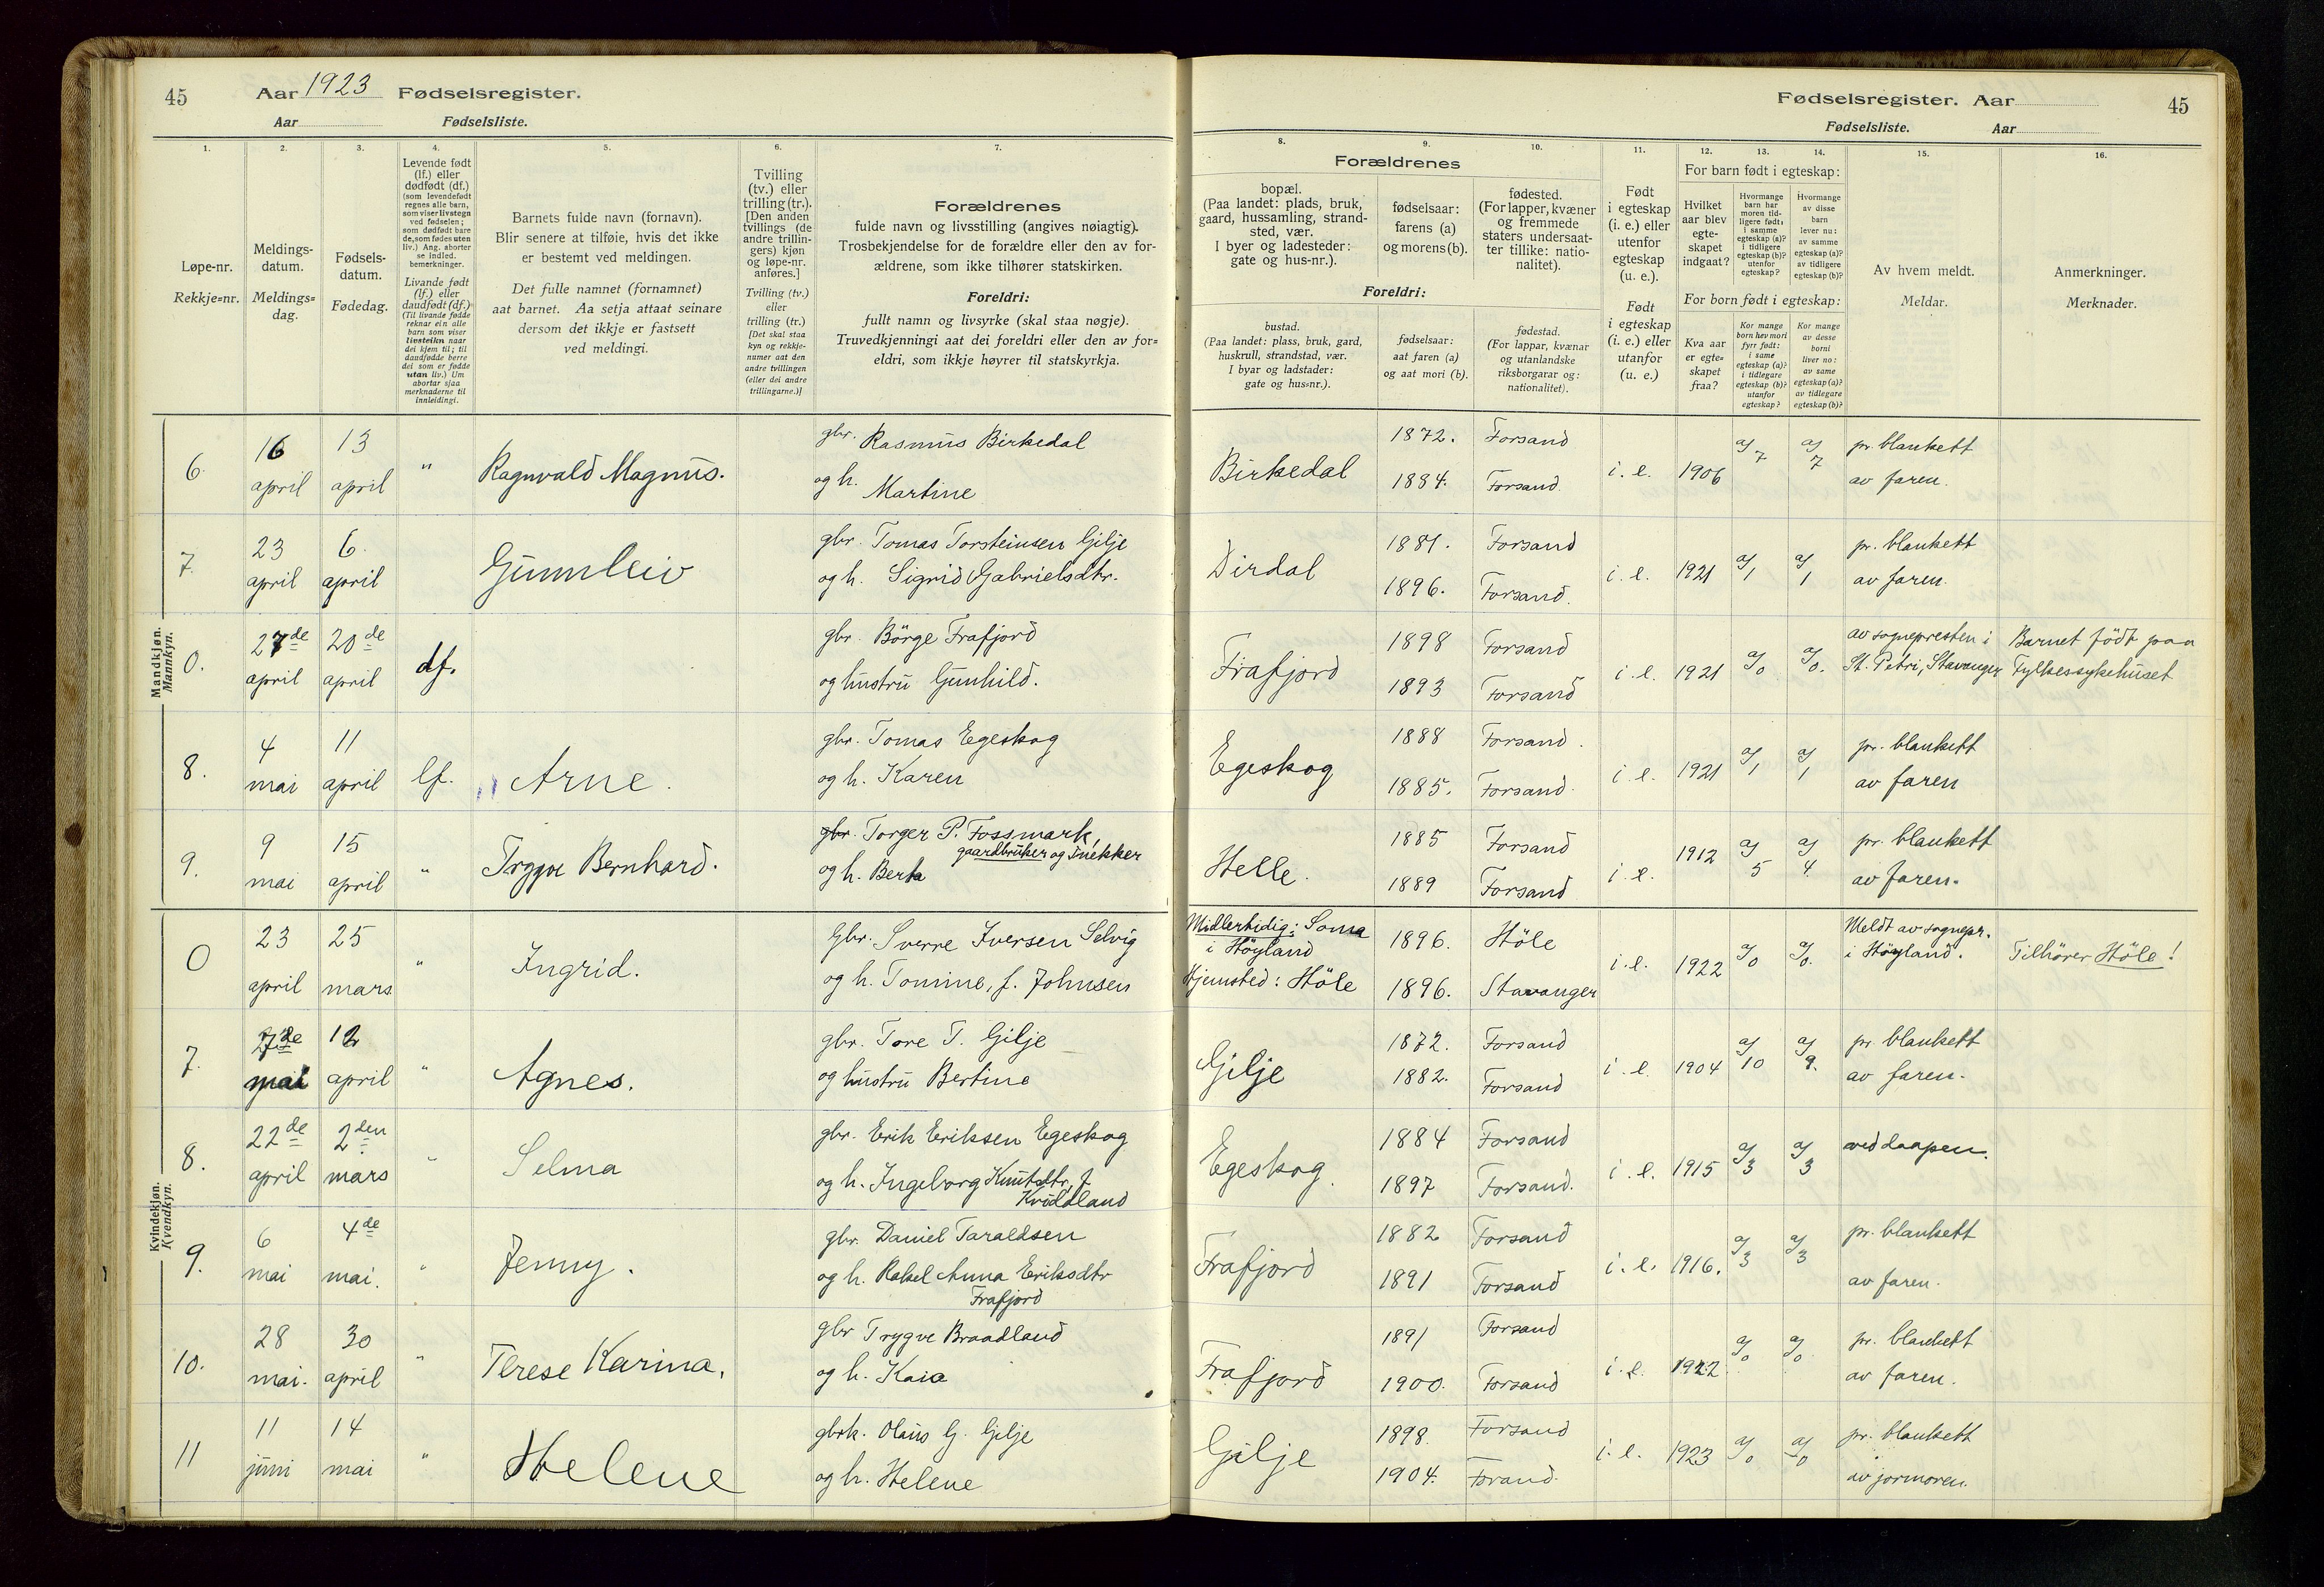 45
Aar 1923 Fødselsregister.
Aar Fødselsliste.
1.
2.
3.
4.
5.
6.
7.
Løpe-nr.
Rekkje=nr.
Meldings-
datum.
Meldings=
dag.
Fødsels-
datum.
Fødedag.
Levende født
(lf.) eller
dødfødt (df.)
(som levendefødt
regnes alle barn,
som viser livstegn
ved fødselen;
som dødfødt bare
de, som fødes uten
liv.) Ang. aborter
se indled.
bemerkninger.
Livande født
(lf.) eller
daudfødt (df.)
(Til livande fødde
reknar ein alle
barn som viser
livsteikn naar
dei kjem til; til
daudfødde berre
dei som er fødde
utan liv.) Um
abortar sjaa
merknaderne til
innleidingi.
Barnets fulde navn (fornavn).
Blir senere at tilføie, hvis det ikke
er bestemt ved meldingen.
Det fulle namnet (fornamnet)
aat barnet. Aa setja attaat seinare
dersom det ikkje er fastsett
ved meldingi.
Tvilling
(tv.) eller
trilling (tr.).
[Den anden
tvillings (de
andre trillin-
gers) kjøn
og løpe-nr.
anføres.]
Tvilling (tv.)
eller
trilling (tr.)
[Det skal staa
kyn og rekkje-
numer aat den
andre tvillingen
(eller dei andre
trillingarne.)]
Forældrenes
fulde navn og livsstilling (angives nøiagtig).
Trosbekjendelse for de forældre eller den av for-
ældrene, som ikke tilhører statskirken.
Foreldri:
fullt namn og livsyrke (skal staa nøgje).
Truvedkjenningi aat dei foreldri eller den av for=
eldri, som ikkje høyrer til statskyrkja.
Fødselsregister. Aar
45
Fødselsliste. Aar
8.
9.
10.
11.
12.
13.
14.
15.
16.
Forældrenes
bopæl.
(Paa landet: plads, bruk,
gaard, hussamling, strand-
sted, vær.
I byer og ladesteder:
gate og hus-nr.).
fødselsaar:
farens (a)
og morens (b).
fødested.
(For lapper, kvæner
og fremmede
staters undersaat-
ter tillike: natio-
nalitet).
Foreldri:
bustad.
(Paa landet: plass, bruk, gard,
huskrull, strandstad, vær.
I byar og ladstader:
gate og hus=nr.).
fødselsaar:
aat faren (a)
og aat mori (b).
fødestad.
(For lappar, kvænar
og utanlandske
riksborgarar og:
nationalitet).
Født
i egteskap
(i. e.) eller
utenfor
egteskap
(u. e.).
Født
i egteskap
(i. e.) eller
utanfor
egteskap
(u. e.)
For barn født i egteskap:
Hvilket
aar blev
egte-
skapet
indgaat?
Hvormange
barn har
moren tid-
ligere født:
i samme
egteskap (a)?
i tidligere
egteskap (b)?
utenfor
egteskap?
Hvormange
av disse
barn
lever nu:
av samme
egteskap (a)?
av tidligere
egteskap (b)?
For born født i egteskap:
Kva aar
er egte=
skapet
fraa?
Kor mange
born hev mori
fyrr født:
i same
egteskap (a)?
i tidlegare
egteskap (b)?
utanfor
egteskap?
Kor mange
av desse
borni
liver no:
av same
egteskap (a)?
av tidlegare
egteskap (b)?
Av hvem meldt.
Meldar.
Anmerkninger.
Merknader.
Mandkjøn.
Mannkyn.
6. 16 april 13 april " Ragnvald Magnus.
gbr. Rasmus Birkedal
og h. Martine
Birkedal 1872. Forsand
1884. Forsand.
i. e. 1906 a/7 a/7 pr. blankett
av faren.
7. 23 april 6. april Gunnleiv
gbr. Tomas Torsteinsen Gilje
og h. Sigrid Gabrielsdtr.
Dirdal 1881. Forsand
1896. Forsand.
i. e. 1921 a/1 a/1 pr. blankett
av faren.
0. 27de april 20de april df.
gbr. Börge Frafjord
og hustru Gunhild.
Frafjord 1898 Forsand
1893 Forsand
i. e. 1921 a/0 a/0. av sognepresten i
St. Petri, Stavanger
Barnet födt paa
Fylkessykehuset
8. 4 mai 11 april lf. Arne.
gbr. Tomas Egeskog
og h. Karen
Egeskog 1888 Forsand.
1885. Forsand.
i. e. 1921 a/1 a/1 pr. blankett
av faren
9. 9 mai 15 april " Trygve Bernhard.
gbr. Torger P. Fossmark,
gaardbruker og snekker
og h. Berta
Helle. 1885 Forsand
1889 Forsand
i. e. 1912 a/5 a/4. pr. blankett
av faren.
0 23 april 25 mars " Ingrid.
Gbr. Sverre Iversen Selvig
og h. Tomine, f. Johnsen
Midlertidig: Soma
i Höyland
Hjemsted: Höle
1896. Höle
1896. Stavanger
i. e. 1922 a/0 a/0. Meldt av sognepr.
i Höyland.
Tilhörer Höle!
Kvindekjøn.
Kvendkyn.
7. mai 12 april " Agnes.
gbr. Tore T. Gilje
og hustru Bertine
Gilje 1872. Forsand
1882. Forsand
i. e. 1904 a/10 a/9. pr. blankett
av faren.
8. 22de april 2den mars " Selma
gbr. Erik Eriksen Egeskog
og h. Ingeborg Knutsdtr, f.
Kviddland
Egeskog. 1884 Forsand
1897 Forsand.
i. e. 1915 a/3 a/3 ved daapen.
9. 6 mai 4de mai. " Jenny.
gbr. Daniel Taraldsen
og h. Rakel Anna Eriksdtr
Frafjord
Frafjord 1882 Forsand
1891 Forsand
i. e. 1916. a/3 a/3 pr. blankett
av faren.
10. 28 mai. 30 april " Terese Karina.
gbr Trygve Braadland
og h. Kaia
Frafjord 1891 Forsand
1900. Forsand
i. e. 1922. a/0 a/0 pr. blankett
av faren.
11 11 juni 14 mai " Helene
gbrk. Olaus G. Gilje
og h. Helene
Gilje 1898. Forsand
1904. Forand.
i. e. 1923 a/0 a/0 pr. blankett
av jormoren.